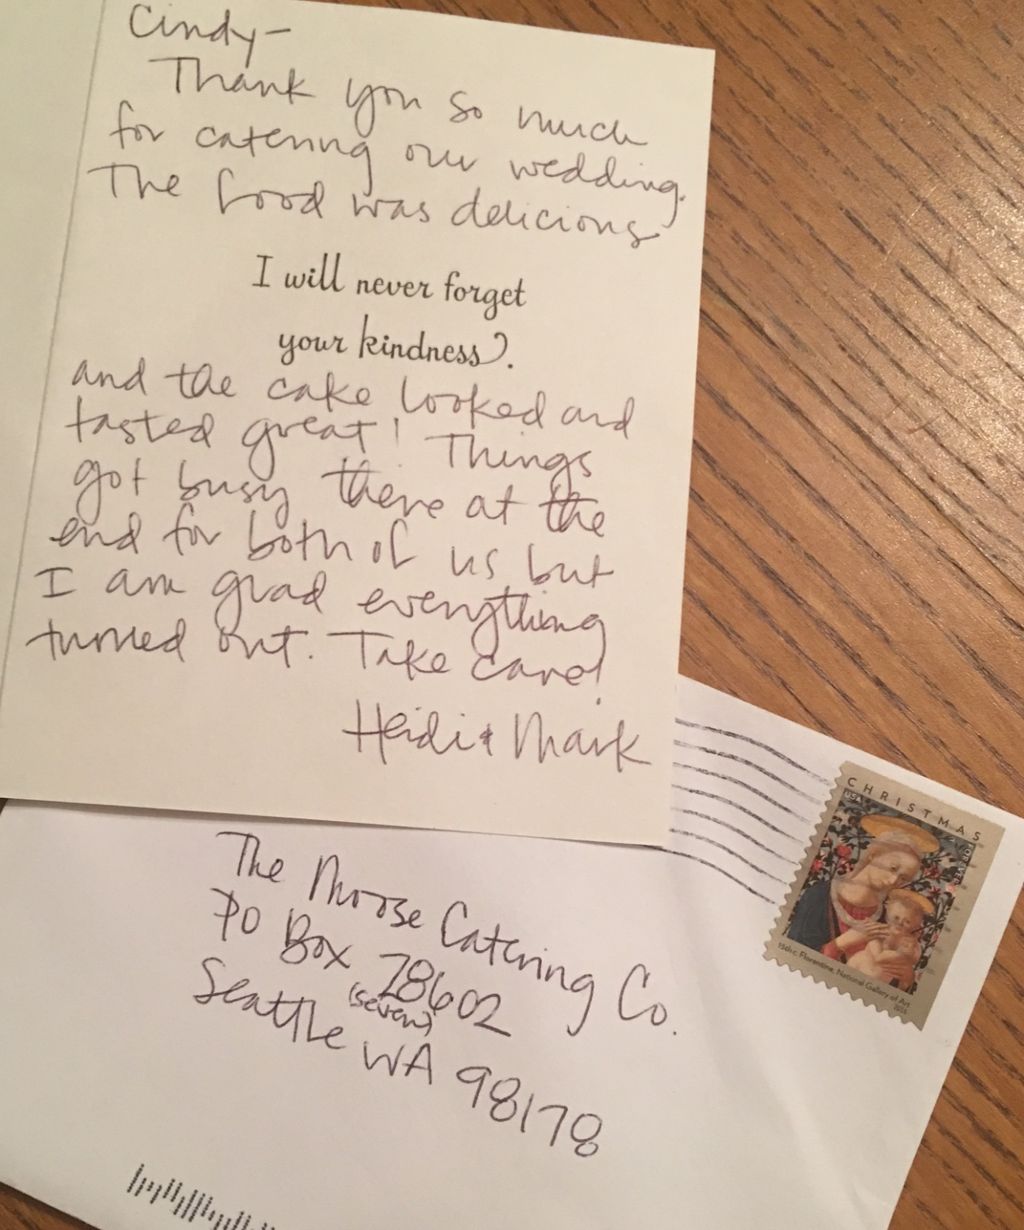 Cindy-
Thank you so much
for catering our wedding.
The food was delicious
I will never forget
your kindness.
and the cake looked and
tasted great! Things
got busy there at the
end for both of us but
I am glad everything
turned out. Take care!
Heidi & Mark
CHRISTMAS
15th c. Florentine, National Gallery of Art
The Moose Catering Co.
PO Box 78602
(seven)
Seattle WA 98178